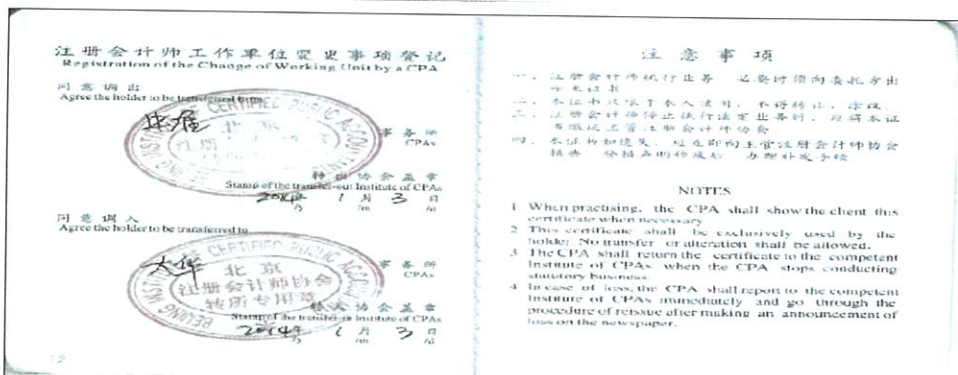 注册会计师工作单位变更事项登记
Registration of the Change of Working Unit by a CPA
同意调出
Agree the holder to be transferred from
事务所
CPAs
转出协会盖章
Stamp of the transfer-out Institute of CPAs
2014年 1月 3日
/y /m /d
同意调入
Agree the holder to be transferred to
大华
事务所
CPAs
BEIJING INSTITUTE OF CERTIFIED PUBLIC ACCOUNTANTS
北京
注册会计师协会
转所专用章
转入协会盖章
Stamp of the transfer-in Institute of CPAs
2014年 1月 3日
/y /m /d
12
注意事项
一、注册会计师执行业务，必要时须向委托方出
示本证书。
二、本证书只限于本人使用，不得转让、涂改。
三、注册会计师停止执行法定业务时，应将本证
书缴还主管注册会计师协会。
四、本证书如遗失，应立即向主管注册会计师协会
报告，登报声明作废后，办理补发手续。
NOTES
1 When practising, the CPA shall show the client this
certificate when necessary.
2 This certificate shall be exclusively used by the
holder. No transfer or alteration shall be allowed.
3 The CPA shall return the certificate to the competent
Institute of CPAs when the CPA stops conducting
statutory business.
4 In case of loss, the CPA shall report to the competent
Institute of CPAs immediately and go through the
procedure of reissue after making an announcement of
loss on the newspaper.